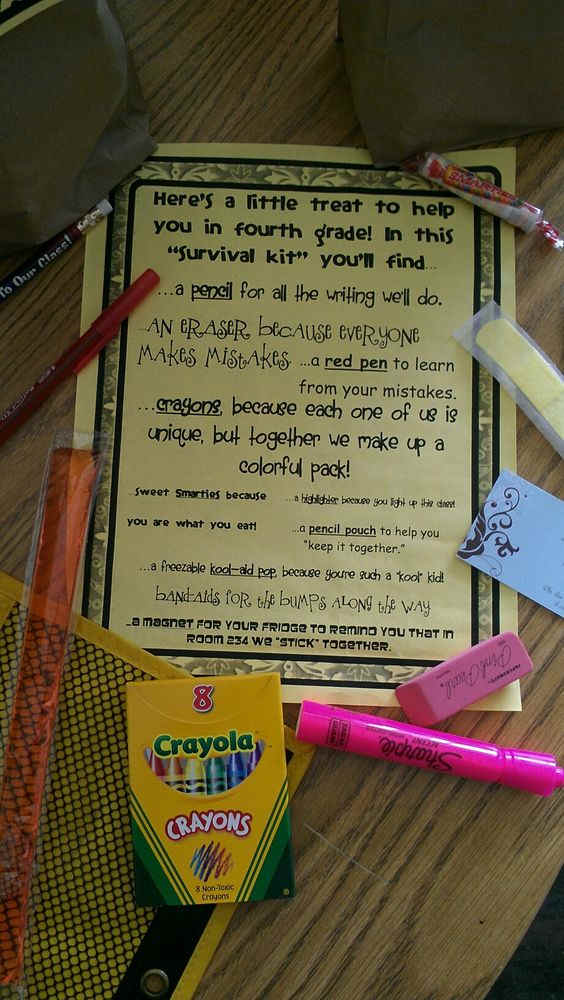 Here's a little treat to help
you in fourth grade! In this
"Survival kit" you'll find...
...a pencil for all the writing we'll do.
...AN ERASER because everyone
makes mistakes. ...a red pen to learn
from your mistakes.
...crayons, because each one of us is
unique, but together we make up a
colorful pack!
...sweet Smarties because
you are what you eat!
...a highlighter because you light up this class!
...a pencil pouch to help you
"keep it together."
...a freezable kool-aid pop, because you're such a "kool" kid!
BAND-AIDS for the bumps along the way
...a magnet for your fridge to remind you that in
Room 234 we "stick" together.
To Our Class!
Pink Pearl
Sharpie
ACCENT
8
Crayola
CRAYONS
8 Non-Toxic
Crayons